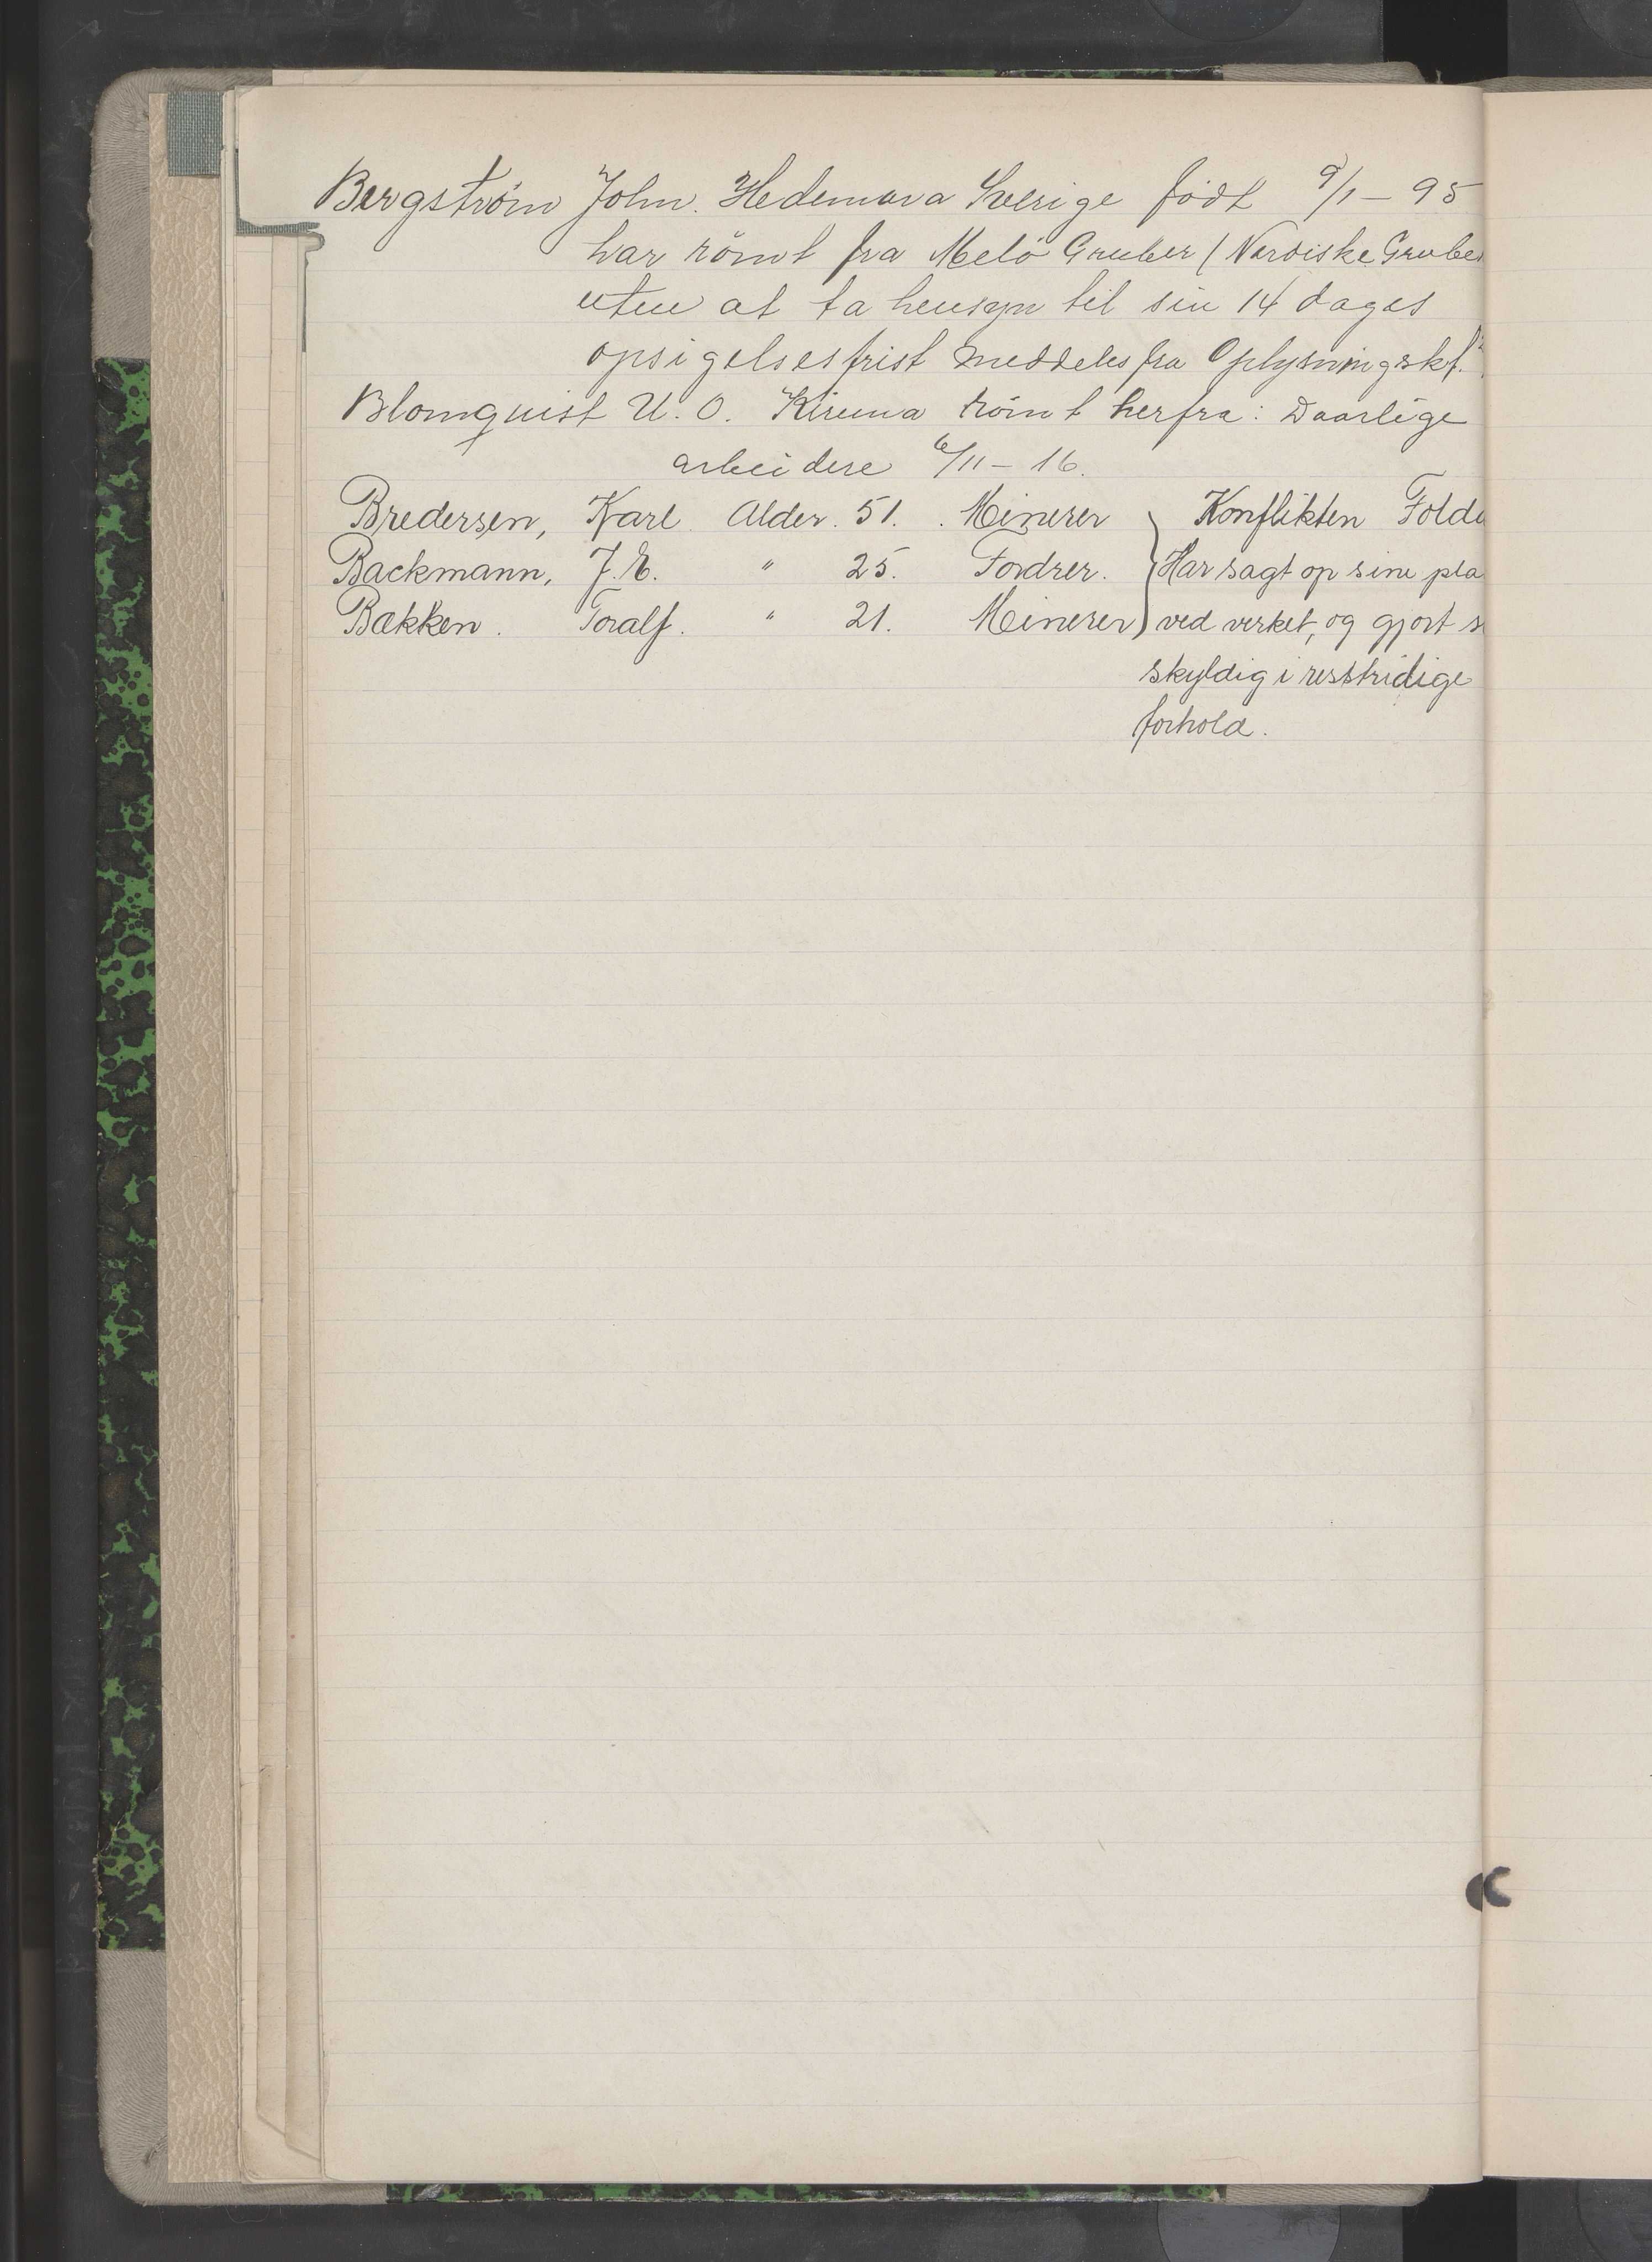 Bergström John. Hedemora Sverige födt 9/1 - 95
har römt fra Melö Gruber (Nordiske Gruber
uten at ta hensyn til sin 14 dages
opsigelsesfrist meddeles fra Oplysningskt.
Blomquist U. O. Kiruna römt herfra: Daarlige
arbeidere 6/11 - 16.
Bredersen, Karl Alder. 51. Minerer Konflikten Folda
Backmann, J. E. " 25. Fordrer. Har sagt op sine pla
Bakken. Toralf. " 21. Minerer ved verket, og gjort s
skyldig i resstridige
forhold.